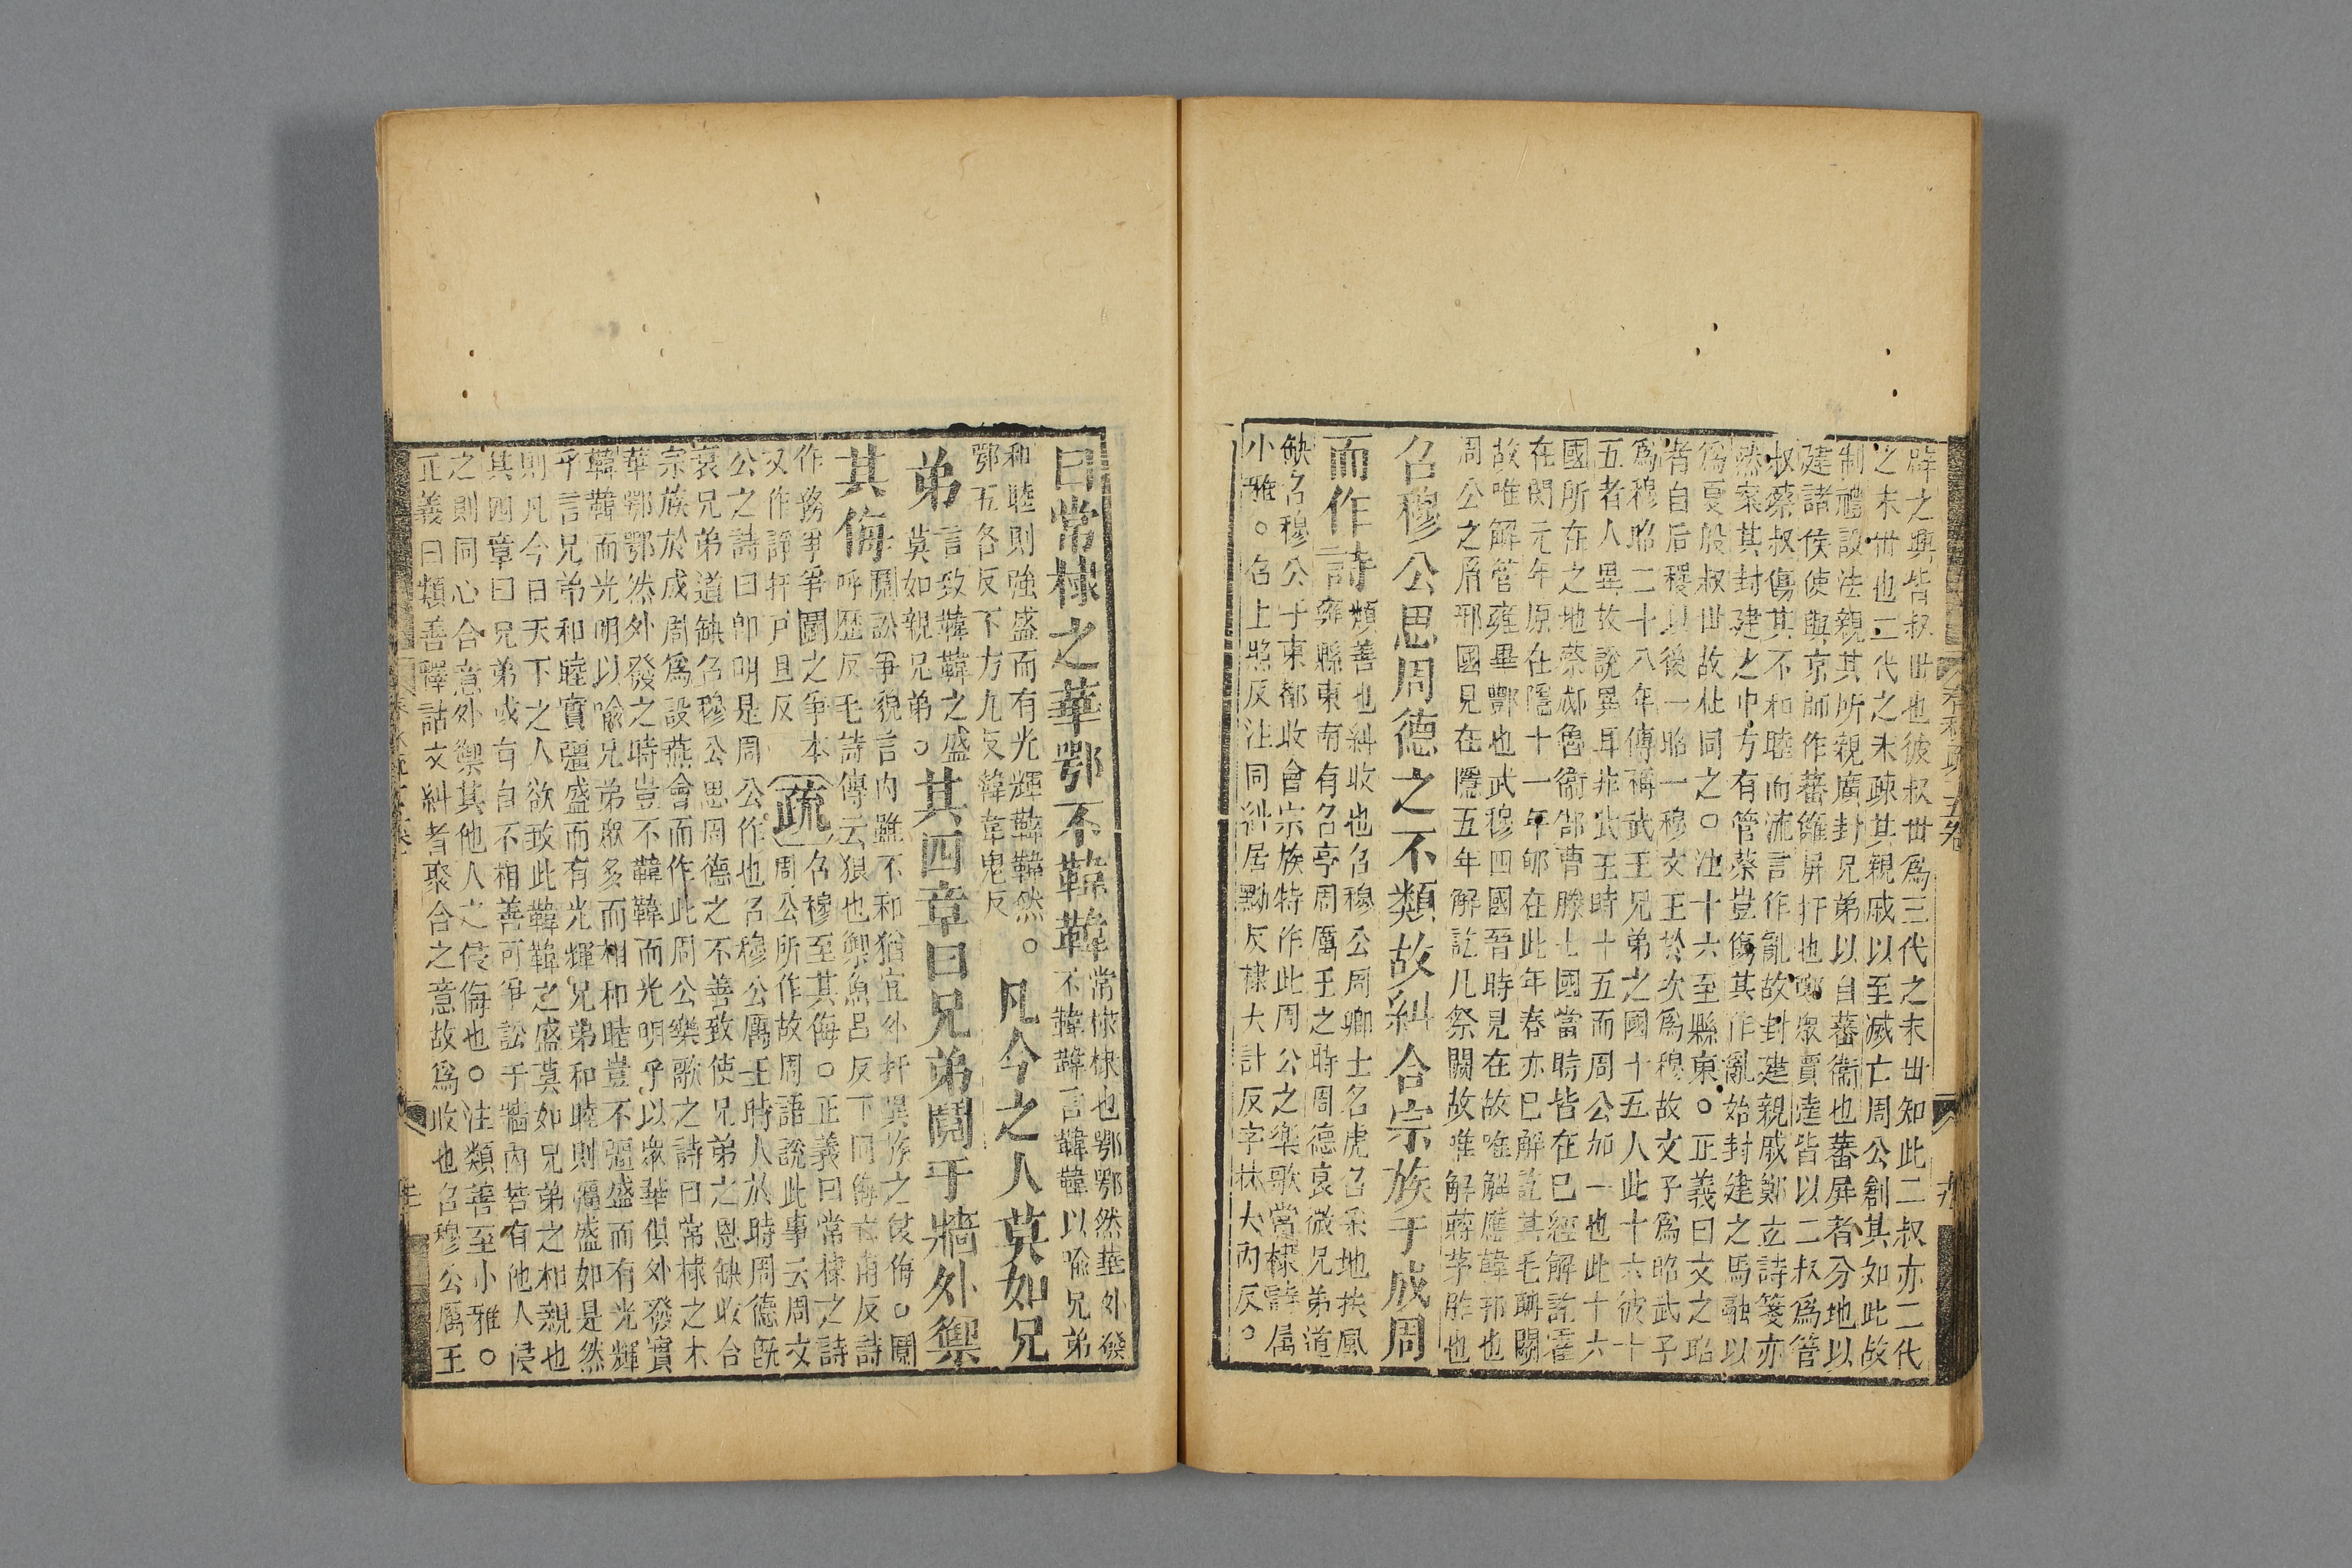 辟之興皆叔世也彼叔世爲三代之末世知此二叔亦二代
之末世也二代之末疎其親戚以至滅亡周公創其如此故
制禮設法親其所親廣封兄弟以自蕃衞也蕃屏者分地以
建諸侯使與京師作蕃籬屏扞也鄭衆賈逵皆以二叔爲管
叔蔡叔傷其不和睦而流言作亂故封建親戚鄭玄詩箋亦
然案其封建之中方有管蔡豈傷其作亂始封建之馬融以
爲夏殷叔世故杜同之○注十六至縣東○正義曰文之昭
者自后稷以後一昭一穆文王於次爲穆故文子爲昭武子
爲穆昭二十八年傳稱武王兄弟之國十五人此十六彼十
五者人異故說異耳非武王時十五而周公加一也此十六
國所在之地蔡郕魯衞郜曹滕七國當時皆在已經解訖霍
在閔元年原在隱十一年郇在此年春亦已解訖其毛聃闕
故唯解管雍畢酆也武穆四國晉時見在故唯解應韓邗也
周公之胤邢國見在隱五年解訖凡祭闕故唯解蔣茅胙也
召穆公思周德之不類故糾合宗族于成周
而作詩 類善也糾收也召穆公周卿士名虎召采地扶風
雍縣東南有召亭周厲王之時周德衰微兄弟道
缺召穆公于東都收會宗族特作此周公之樂歌常棣詩属
小雅○召上照反注同糾居黝反棣大計反字林大內反○
曰常棣之華鄂不韡韡 常棣棣也鄂鄂然華外發
不韡韡言韡韡以喻兄弟
和睦則強盛而有光輝韡韡然○
鄂五各反下方九反韡韋鬼反
凡今之人莫如兄
弟 言致韡韡之盛
莫如親兄弟○
其四章曰兄弟鬩于牆外禦
其侮 鬩訟爭貌言內雖不和猶宜外扞異族之侵侮○鬩
呼歷反毛詩傳云狠也禦魚呂反下同侮亡甫反詩
作務爭爭鬪之爭本
又作諍扞戶旦反
疏 召穆至其侮○正義曰常棣之詩
周公所作故周語說此事云周文
公之詩曰卽明是周公作也召穆公厲王時人於時周德旣
衰兄弟道缺召穆公思周德之不善致使兄弟之恩缺收合
宗族於成周爲設燕會而作此周公樂歌之詩曰常棣之木
華鄂鄂然外發之時豈不韡韡而光明乎以衆華俱外發實
韡韡而光明以喻兄弟衆多而相和睦豈不彊盛而有光輝
乎言兄弟和睦實彊盛而有光輝兄弟和睦則彊盛如是然
則凡今日天下之人欲致此韡韡之盛莫如兄弟之相親也
其四章曰兄弟或有自不相善可爭訟于牆內若有他人侵
之則同心合意外禦其他人之侵侮也○注類善至小雅○
正義曰類善釋詁文糾者聚合之意故爲收也召穆公厲王